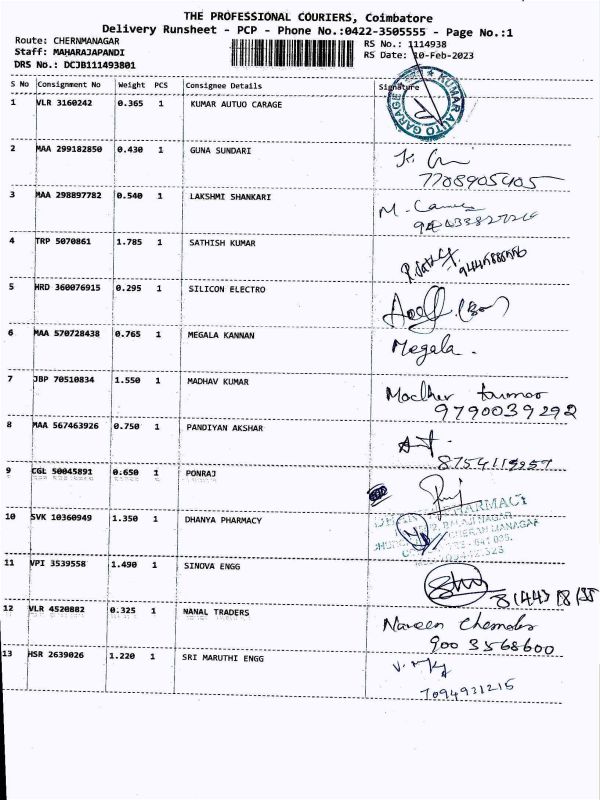 THE PROFESSIONAL COURIERS, Coimbatore
Delivery Runsheet - PCP - Phone No.:0422-3505555 - Page No.:1
Route: CHERNMANAGAR RS No.: 1114938
Staff: MAHARAJAPANDI RS Date: 10-Feb-2023
DRS No.: DCJB111493801
S No Consignment No Weight PCS Consignee Details Signature
1 VLR 3160242 0.365 1 KUMAR AUTUO CARAGE
KUMAR AUTO GARAGE
2 MAA 299182850 0.430 1 GUNA SUNDARI
7708905405
3 MAA 298897782 0.540 1 LAKSHMI SHANKARI
4 TRP 5070861 1.785 1 SATHISH KUMAR
5 HRD 360076915 0.295 1 SILICON ELECTRO
6 MAA 570728438 0.765 1 MEGALA KANNAN
Megala.
7 JBP 70510834 1.550 1 MADHAV KUMAR
9790039292
8 MAA 567463926 0.750 1 PANDIYAN AKSHAR
9 CGL 50045891 0.650 1 PONRAJ
10 SVK 10360949 1.350 1 DHANYA PHARMACY
11 VPI 3539558 1.490 1 SINOVA ENGG
12 VLR 4520882 0.325 1 NANAL TRADERS
Naveen
900 3568600
13 HSR 2639026 1.220 1 SRI MARUTHI ENGG
7094931215